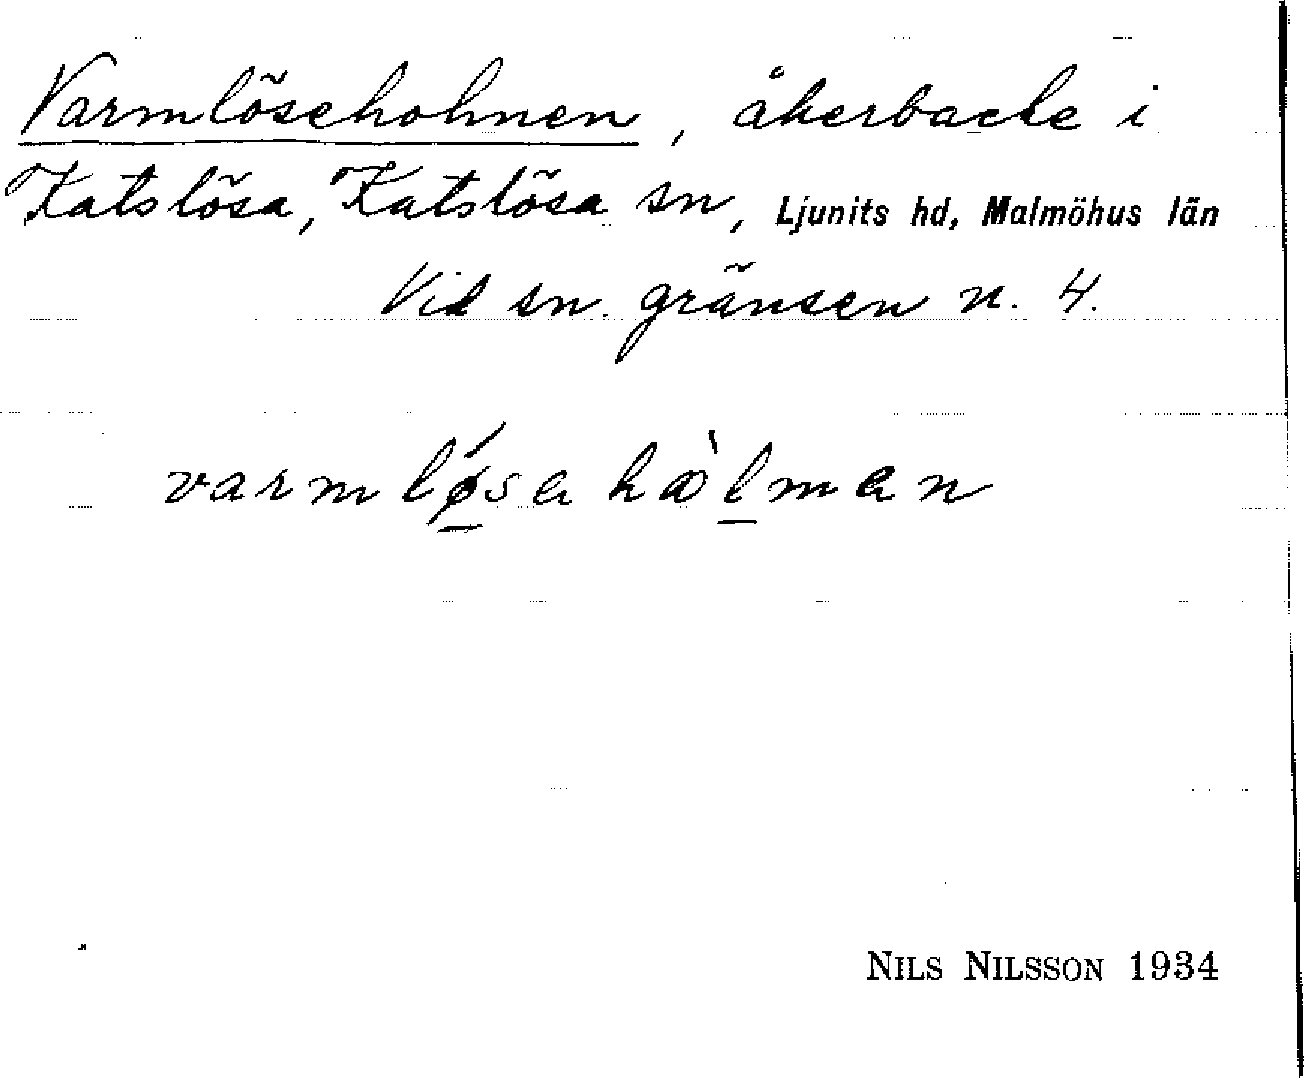 Varmlöseholmen, åkerbacke i
Katslösa, Katslösa sn, Ljunits hd, Malmöhus län
Vid sn. gränsen n. 4.
varmløsa hålman
NILS NILSSON 1934